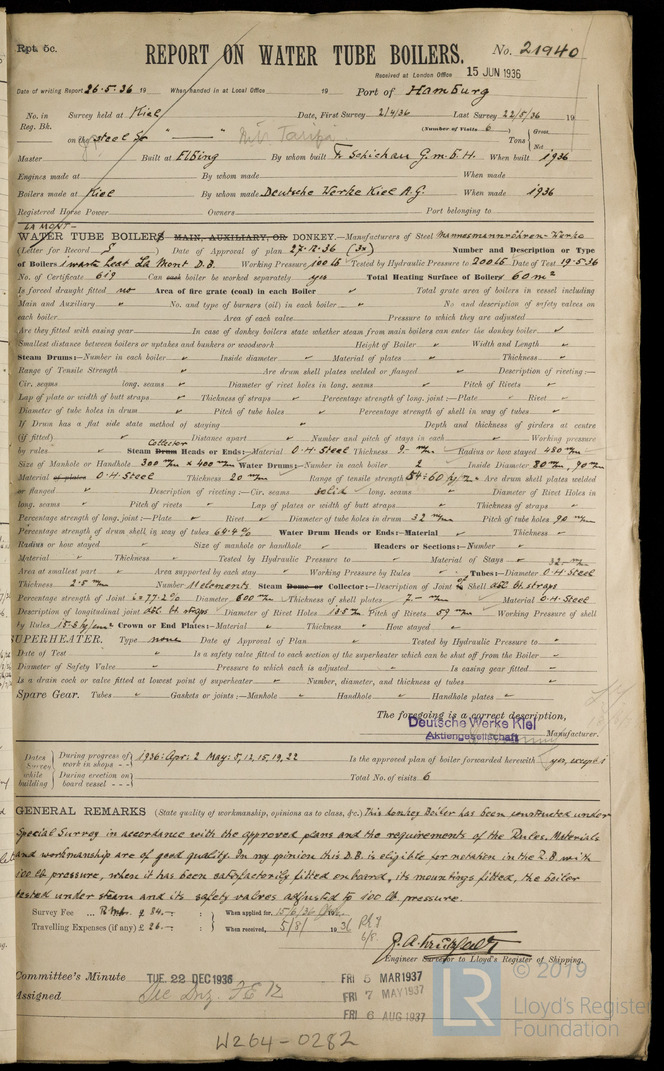 Rpt. 5c.
REPORT ON WATER TUBE BOILERS.
No. 21940
Received at London Office 15 JUN 1936
Date of writing Report 26.5.36 19 When handed in at Local Office 19 Port of Hamburg
No. in Reg. Bk. Survey held at Kiel Date, First Survey 2/4/36 Last Survey 22/5/36 19
(Number of Visits 6)
on the Steel Sr " M/V Tarifa Tons { Gross Net
Master Built at Elbing By whom built F. Schichau G.m.b.H. When built 1936
Engines made at By whom made When made
Boilers made at Kiel By whom made Deutsche Werke Kiel A.G. When made 1936
Registered Horse Power Owners Port belonging to
LA MONT-
WATER TUBE BOILERS MAIN, AUXILIARY, OR DONKEY.—Manufacturers of Steel Mannesmannröhren-Werke
(Letter for Record S) Date of Approval of plan Number and Description or Type
of Boilers 1 waste heat La Mont D.B. Working Pressure 100 lb Tested by Hydraulic Pressure to 200 lb Date of Test 19.5.36
No. of Certificate 619 Can each boiler be worked separately yes Total Heating Surface of Boilers 60 m²
Is forced draught fitted no Area of fire grate (coal) in each Boiler Total grate area of boilers in vessel including
Main and Auxiliary No. and type of burners (oil) in each boiler No and description of safety valves on
each boiler Area of each valve Pressure to which they are adjusted
Are they fitted with easing gear In case of donkey boilers state whether steam from main boilers can enter the donkey boiler
Smallest distance between boilers or uptakes and bunkers or woodwork Height of Boiler Width and Length
Steam Drums:—Number in each boiler Inside diameter Material of plates Thickness
Range of Tensile Strength Are drum shell plates welded or flanged Description of riveting:—
Cir. seams long. seams Diameter of rivet holes in long. seams Pitch of Rivets
Lap of plate or width of butt straps Thickness of straps Percentage strength of long. joint:—Plate Rivet
Diameter of tube holes in drum Pitch of tube holes Percentage strength of shell in way of tubes
If Drum has a flat side state method of staying Depth and thickness of girders at centre
(if fitted) Distance apart Number and pitch of stays in each Working pressure
by rules Steam Drum Collector Heads or Ends:—Material O.H. Steel Thickness 9 m/m Radius or how stayed 480 m/m
Size of Manhole or Handhole 300 m/m x 400 m/m Water Drums:—Number in each boiler 2 Inside Diameter 80 m/m, 90 m/m
Material of plates O.H. Steel Thickness 20 m/m Range of tensile strength Are drum shell plates welded
or flanged Description of riveting:—Cir. seams solid long. seams Diameter of Rivet Holes in
long. seams Pitch of rivets Lap of plates or width of butt straps Thickness of straps
Percentage strength of long. joint:—Plate Rivet Diameter of tube holes in drum 32 m/m Pitch of tube holes 90 m/m
Percentage strength of drum shell in way of tubes 64.4% Water Drum Heads or Ends:—Material Thickness
Radius or how stayed Size of manhole or handhole Headers or Sections:—Number
Material Thickness Tested by Hydraulic Pressure to Material of Stays
Area at smallest part Area supported by each stay Working Pressure by Rules Tubes:—Diameter 32 m/m O.H. Steel
Thickness 2.5 m/m Number 11 elements Steam Dome or Collector:—Description of Joint to Shell dbl. bt. straps
Percentage strength of Joint 77.2% Diameter 600 m/m Thickness of shell plates 7 m/m Material O.H. Steel
Description of longitudinal joint dbl. bt. straps Diameter of Rivet Holes 13.5 m/m Pitch of Rivets 59 m/m Working Pressure of shell
by Rules Crown or End Plates:—Material Thickness How stayed
SUPERHEATER. Type none Date of Approval of Plan Tested by Hydraulic Pressure to
Date of Test Is a safety valve fitted to each section of the superheater which can be shut off from the Boiler
Diameter of Safety Valve Pressure to which each is adjusted Is easing gear fitted
Is a drain cock or valve fitted at lowest point of superheater Number, diameter, and thickness of tubes
Spare Gear. Tubes Gaskets or joints:—Manhole Handhole Handhole plates
The foregoing is a correct description,
Deutsche Werke Kiel
Aktiengesellschaft Manufacturer.
Dates of Survey while building
During progress of work in shops 1936: Apr: 2 May: 5, 12, 15, 19, 22 Is the approved plan of boiler forwarded herewith yes, except 1
During erection on board vessel Total No. of visits 6
GENERAL REMARKS (State quality of workmanship, opinions as to class, &c.) This donkey Boiler has been constructed under
Special Survey in accordance with the approved plans and the requirements of the Rules. Materials
and workmanship are of good quality. In my opinion this D.B. is eligible for notation in the R.B. with
100 lb pressure, when it has been satisfactorily fitted onboard, its mountings fitted, the boiler
tested under steam and its safety valves adjusted to 100 lb pressure.
Survey Fee ... R.M. £ 84.— : When applied for, 15/6/36
Travelling Expenses (if any) £ 26.— : When received, 5/8/ 1936
Engineer Surveyor to Lloyd's Register of Shipping.
Committee's Minute TUE 22 DEC 1936 FRI 5 MAR 1937
Assigned FRI 7 MAY 1937
FRI 6 AUG 1937
W264-0282
© 2019
Lloyd's Register
Foundation
LR